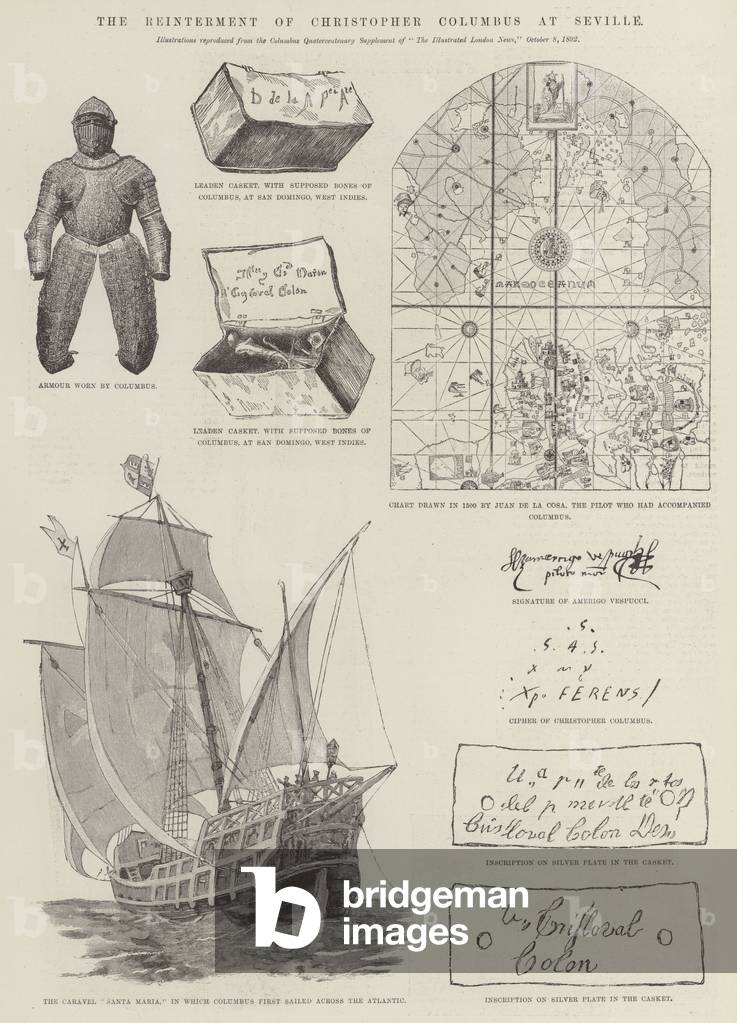 THE REINTERMENT OF CHRISTOPHER COLUMBUS AT SEVILLE.
Illustrations reproduced from the Columbus Quatercentenary Supplement of "The Illustrated London News," October 8, 1892.
D de la A Per Ate
LEADEN CASKET, WITH SUPPOSED BONES OF
COLUMBUS, AT SAN DOMINGO, WEST INDIES.
Colon
LEADEN CASKET, WITH SUPPOSED BONES OF
COLUMBUS, AT SAN DOMINGO, WEST INDIES.
ARMOUR WORN BY COLUMBUS.
MARE OCEANUM
CHART DRAWN IN 1500 BY JUAN DE LA COSA, THE PILOT WHO HAD ACCOMPANIED
COLUMBUS.
SIGNATURE OF AMERIGO VESPUCCI.
.S.
.S. A .S.
X M Y
: Xpo FERENS./
CIPHER OF CHRISTOPHER COLUMBUS.
U,,a p,,te de los r tos
del p mer
Cristoval Colon Des,,
INSCRIPTION ON SILVER PLATE IN THE CASKET.
U,, Cristoval
Colon
INSCRIPTION ON SILVER PLATE IN THE CASKET.
THE CARAVEL "SANTA MARIA," IN WHICH COLUMBUS FIRST SAILED ACROSS THE ATLANTIC.
b bridgeman
images